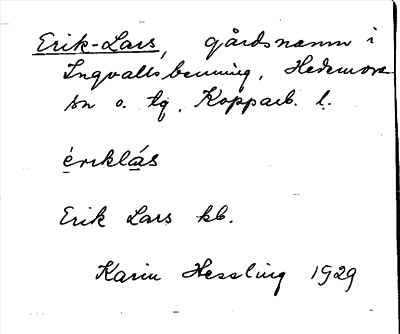 Erik-Lars, gårdsnamn i
Ingvallsbenning, Hedemora
sn o. tg, Kopparb. l.
èriklás
Erik Lars kb.
Karin Hessling 1929